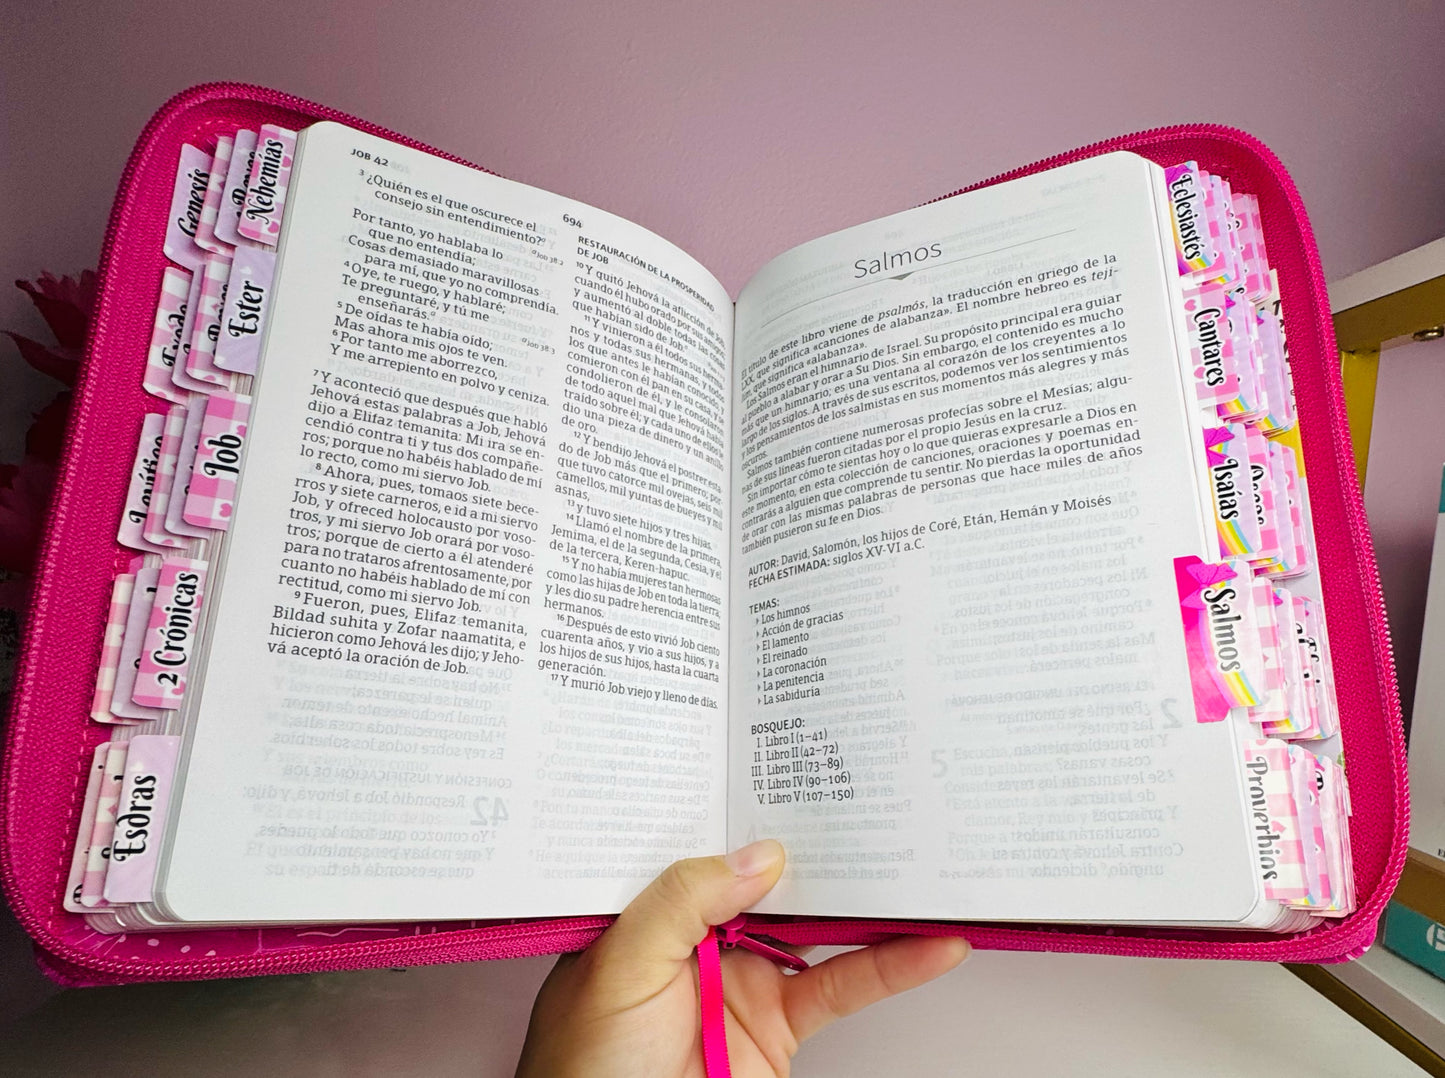 JOB 42
694
³ ¿Quién es el que oscurece el
consejo sin entendimiento?ᵃ
Por tanto, yo hablaba lo
que no entendía; ᵃJob 38:2
Cosas demasiado maravillosas
para mí, que yo no comprendía.
⁴ Oye, te ruego, y hablaré;
Te preguntaré, y tú me
enseñarás.ᵃ ᵃJob 38:3
⁵ De oídas te había oído;
Mas ahora mis ojos te ven.
⁶ Por tanto me aborrezco,
Y me arrepiento en polvo y ceniza.
⁷ Y aconteció que después que habló
Jehová estas palabras a Job, Jehová
dijo a Elifaz temanita: Mi ira se en-
cendió contra ti y tus dos compañe-
ros; porque no habéis hablado de mí
lo recto, como mi siervo Job.
⁸ Ahora, pues, tomaos siete bece-
rros y siete carneros, e id a mi siervo
Job, y ofreced holocausto por voso-
tros, y mi siervo Job orará por voso-
tros; porque de cierto a él atenderé
para no trataros afrentosamente, por
cuanto no habéis hablado de mí con
rectitud, como mi siervo Job.
⁹ Fueron, pues, Elifaz temanita,
Bildad suhita y Zofar naamatita, e
hicieron como Jehová les dijo; y Jeho-
vá aceptó la oración de Job.
RESTAURACIÓN DE LA PROSPERIDAD
DE JOB
¹⁰ Y quitó Jehová la aflicción de Job,
cuando él hubo orado por sus amigos;
y aumentó al doble todas las cosas
que habían sido de Job.
¹¹ Y vinieron a él todos sus herma-
nos y todas sus hermanas, y todos
los que antes le habían conocido, y
comieron con él pan en su casa, y se
condolieron de él, y le consolaron
de todo aquel mal que Jehová había
traído sobre él; y cada uno de ellos le
dio una pieza de dinero y un anillo
de oro.
¹² Y bendijo Jehová el postrer esta-
do de Job más que el primero; por-
que tuvo catorce mil ovejas, seis mil
camellos, mil yuntas de bueyes y mil
asnas,
¹³ y tuvo siete hijos y tres hijas.
¹⁴ Llamó el nombre de la primera,
Jemima, el de la segunda, Cesia, y el
de la tercera, Keren-hapuc.
¹⁵ Y no había mujeres tan hermosas
como las hijas de Job en toda la tierra;
y les dio su padre herencia entre sus
hermanos.
¹⁶ Después de esto vivió Job ciento
cuarenta años, y vio a sus hijos, y a
los hijos de sus hijos, hasta la cuarta
generación.
¹⁷ Y murió Job viejo y lleno de días.
Salmos
El título de este libro viene de psalmós, la traducción en griego de la
LXX, que significa «canciones de alabanza». El nombre hebreo es teji-
lim, que significa «alabanza».
Los Salmos eran el himnario de Israel. Su propósito principal era guiar
al pueblo a alabar y orar a Su Dios. Sin embargo, el contenido es mucho
más que un himnario; es una ventana al corazón de los creyentes a lo
largo de los siglos. A través de sus escritos, podemos ver los sentimientos
y los pensamientos de los salmistas en sus momentos más alegres y más
oscuros.
Salmos también contiene numerosas profecías sobre el Mesías; algu-
nas de sus líneas fueron citadas por el propio Jesús en la cruz.
Sin importar cómo te sientas hoy o lo que quieras expresarle a Dios en
este momento, en esta colección de canciones, oraciones y poemas en-
contrarás a alguien que comprende tu sentir. No pierdas la oportunidad
de orar con las mismas palabras de personas que hace miles de años
también pusieron su fe en Dios.
AUTOR: David, Salomón, los hijos de Coré, Etán, Hemán y Moisés
FECHA ESTIMADA: siglos XV-VI a.C.
TEMAS:
› Los himnos
› Acción de gracias
› El lamento
› El reinado
› La coronación
› La penitencia
› La sabiduría
BOSQUEJO:
I. Libro I (1–41)
II. Libro II (42–72)
III. Libro III (73–89)
IV. Libro IV (90–106)
V. Libro V (107–150)
Genesis
Nehemías
Ester
Job
2 Crónicas
Esdras
Eclesiastés
Cantares
Isaías
Salmos
Proverbios